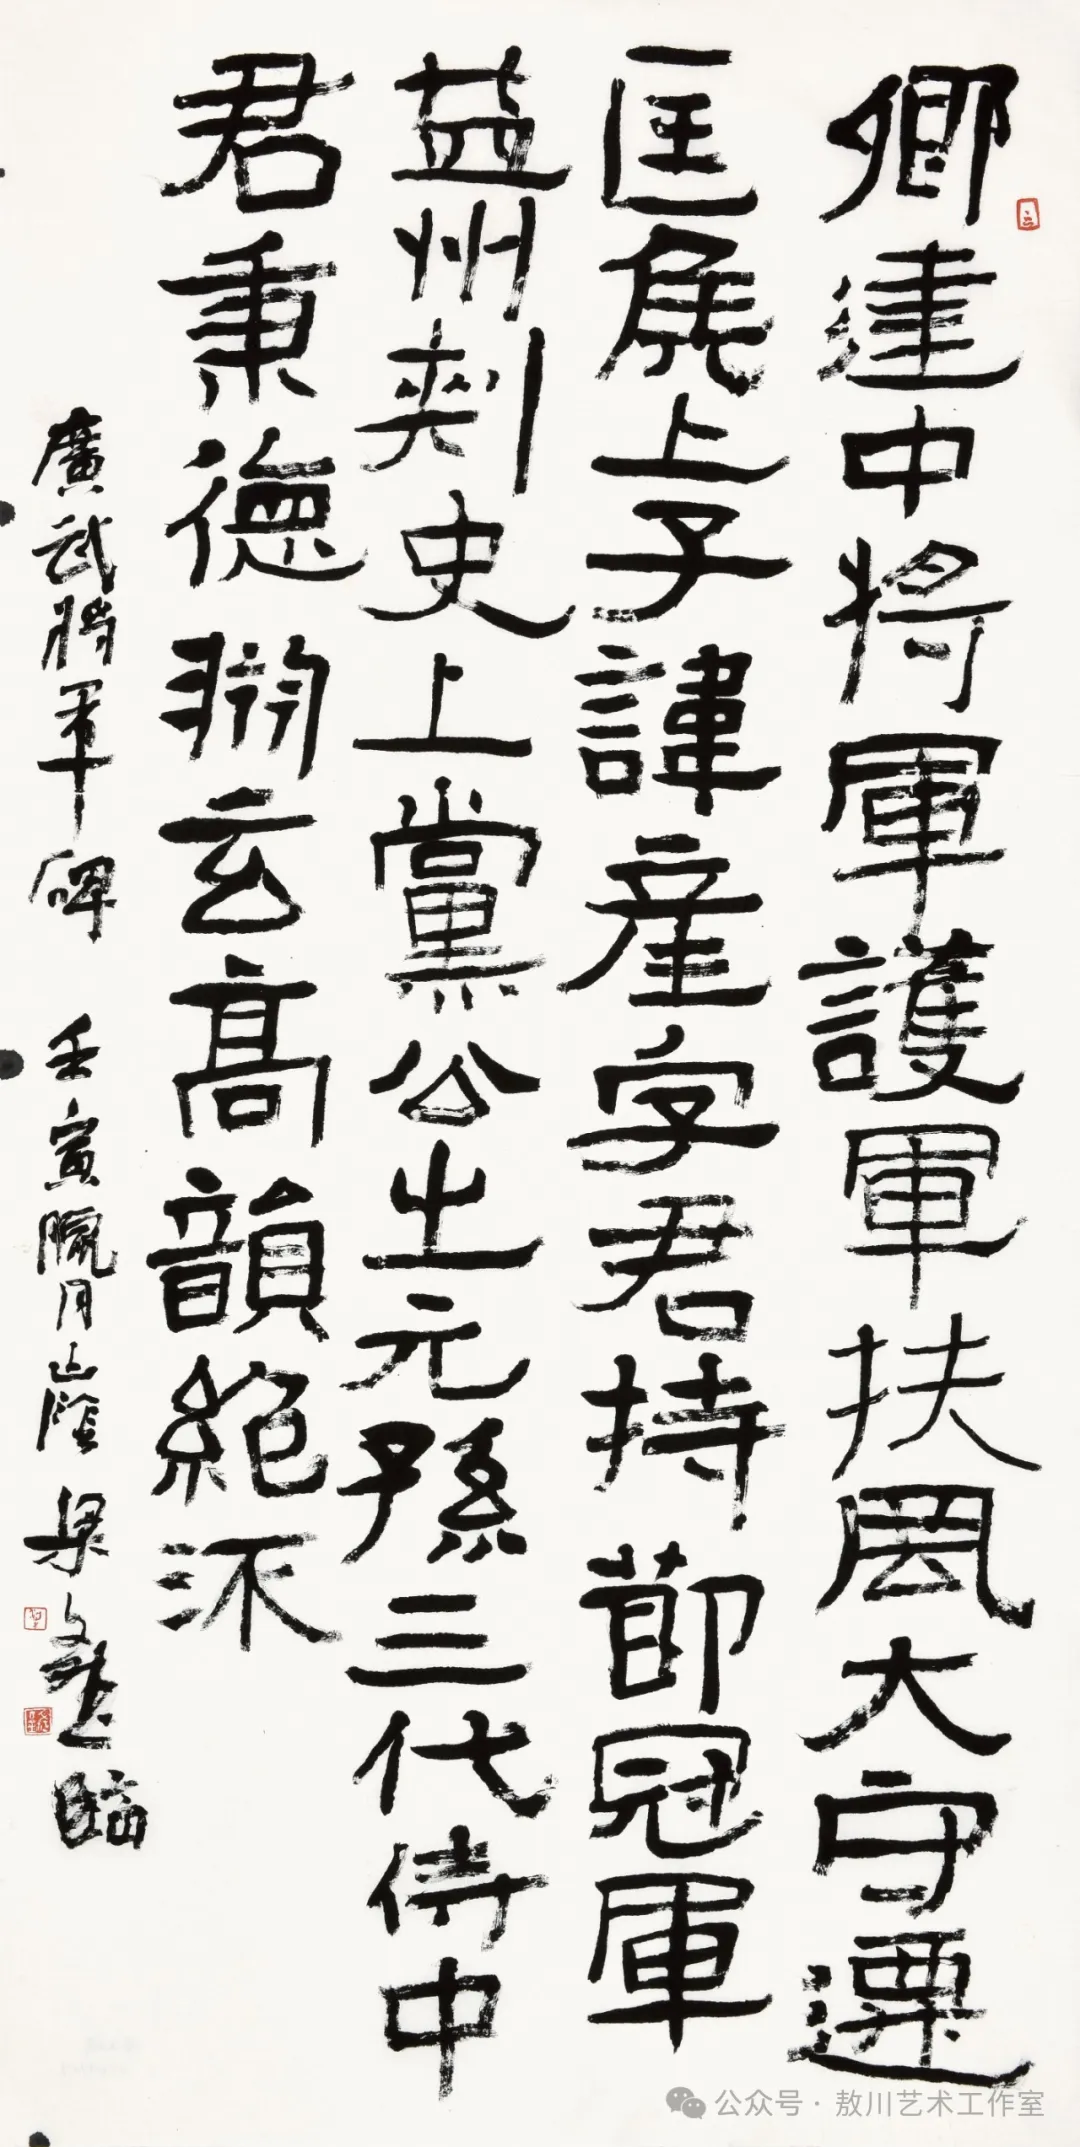 卿建中將軍護軍扶風大守遷
匡侯上子諱產字君持節冠軍
益州刺史上黨公之元孫三代侍中
君秉德淵玄高韻絕
廣武將軍碑 壬寅臘月山陰梁文斌臨
公众号·敖川艺术工作室